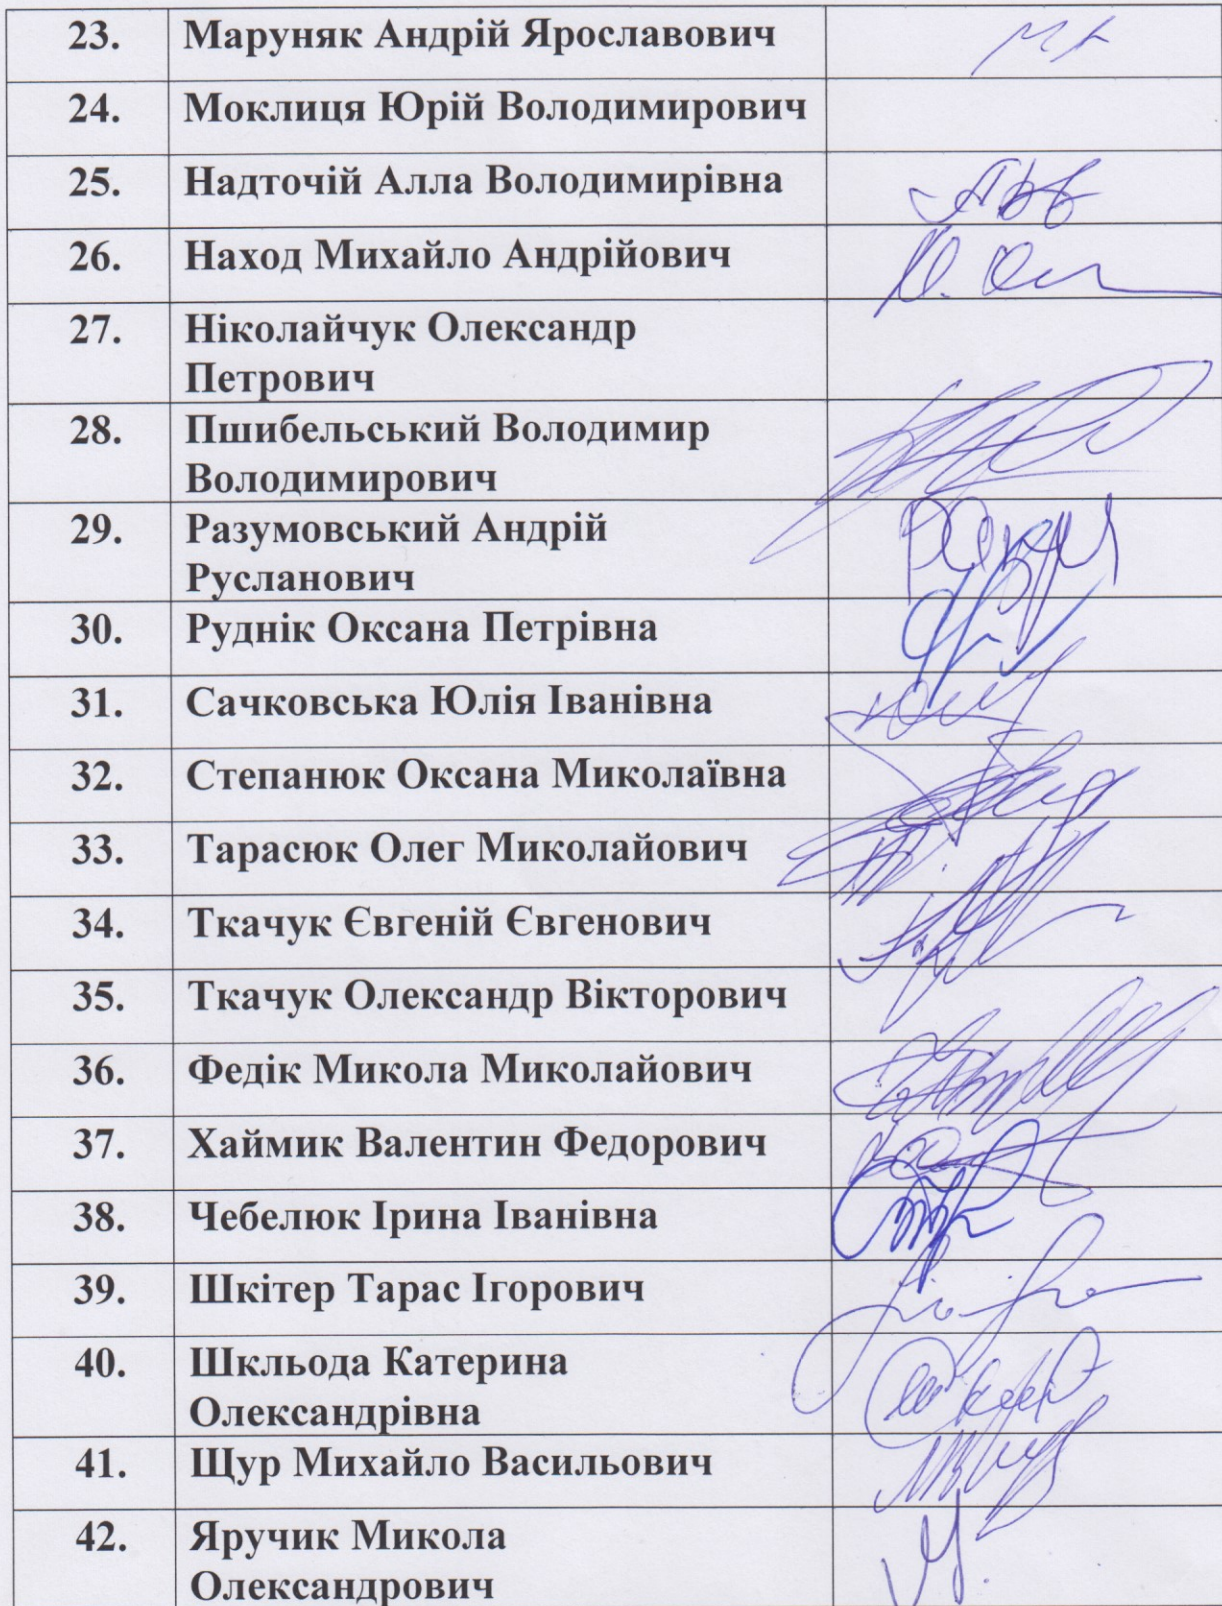 23. Маруняк Андрій Ярославович
24. Моклиця Юрій Володимирович
25. Надточій Алла Володимирівна
26. Наход Михайло Андрійович
27. Ніколайчук Олександр
Петрович
28. Пшибельський Володимир
Володимирович
29. Разумовський Андрій
Русланович
30. Руднік Оксана Петрівна
31. Сачковська Юлія Іванівна
32. Степанюк Оксана Миколаївна
33. Тарасюк Олег Миколайович
34. Ткачук Євгеній Євгенович
35. Ткачук Олександр Вікторович
36. Федік Микола Миколайович
37. Хаймик Валентин Федорович
38. Чебелюк Ірина Іванівна
39. Шкітер Тарас Ігорович
40. Шкльода Катерина
Олександрівна
41. Щур Михайло Васильович
42. Яручик Микола
Олександрович